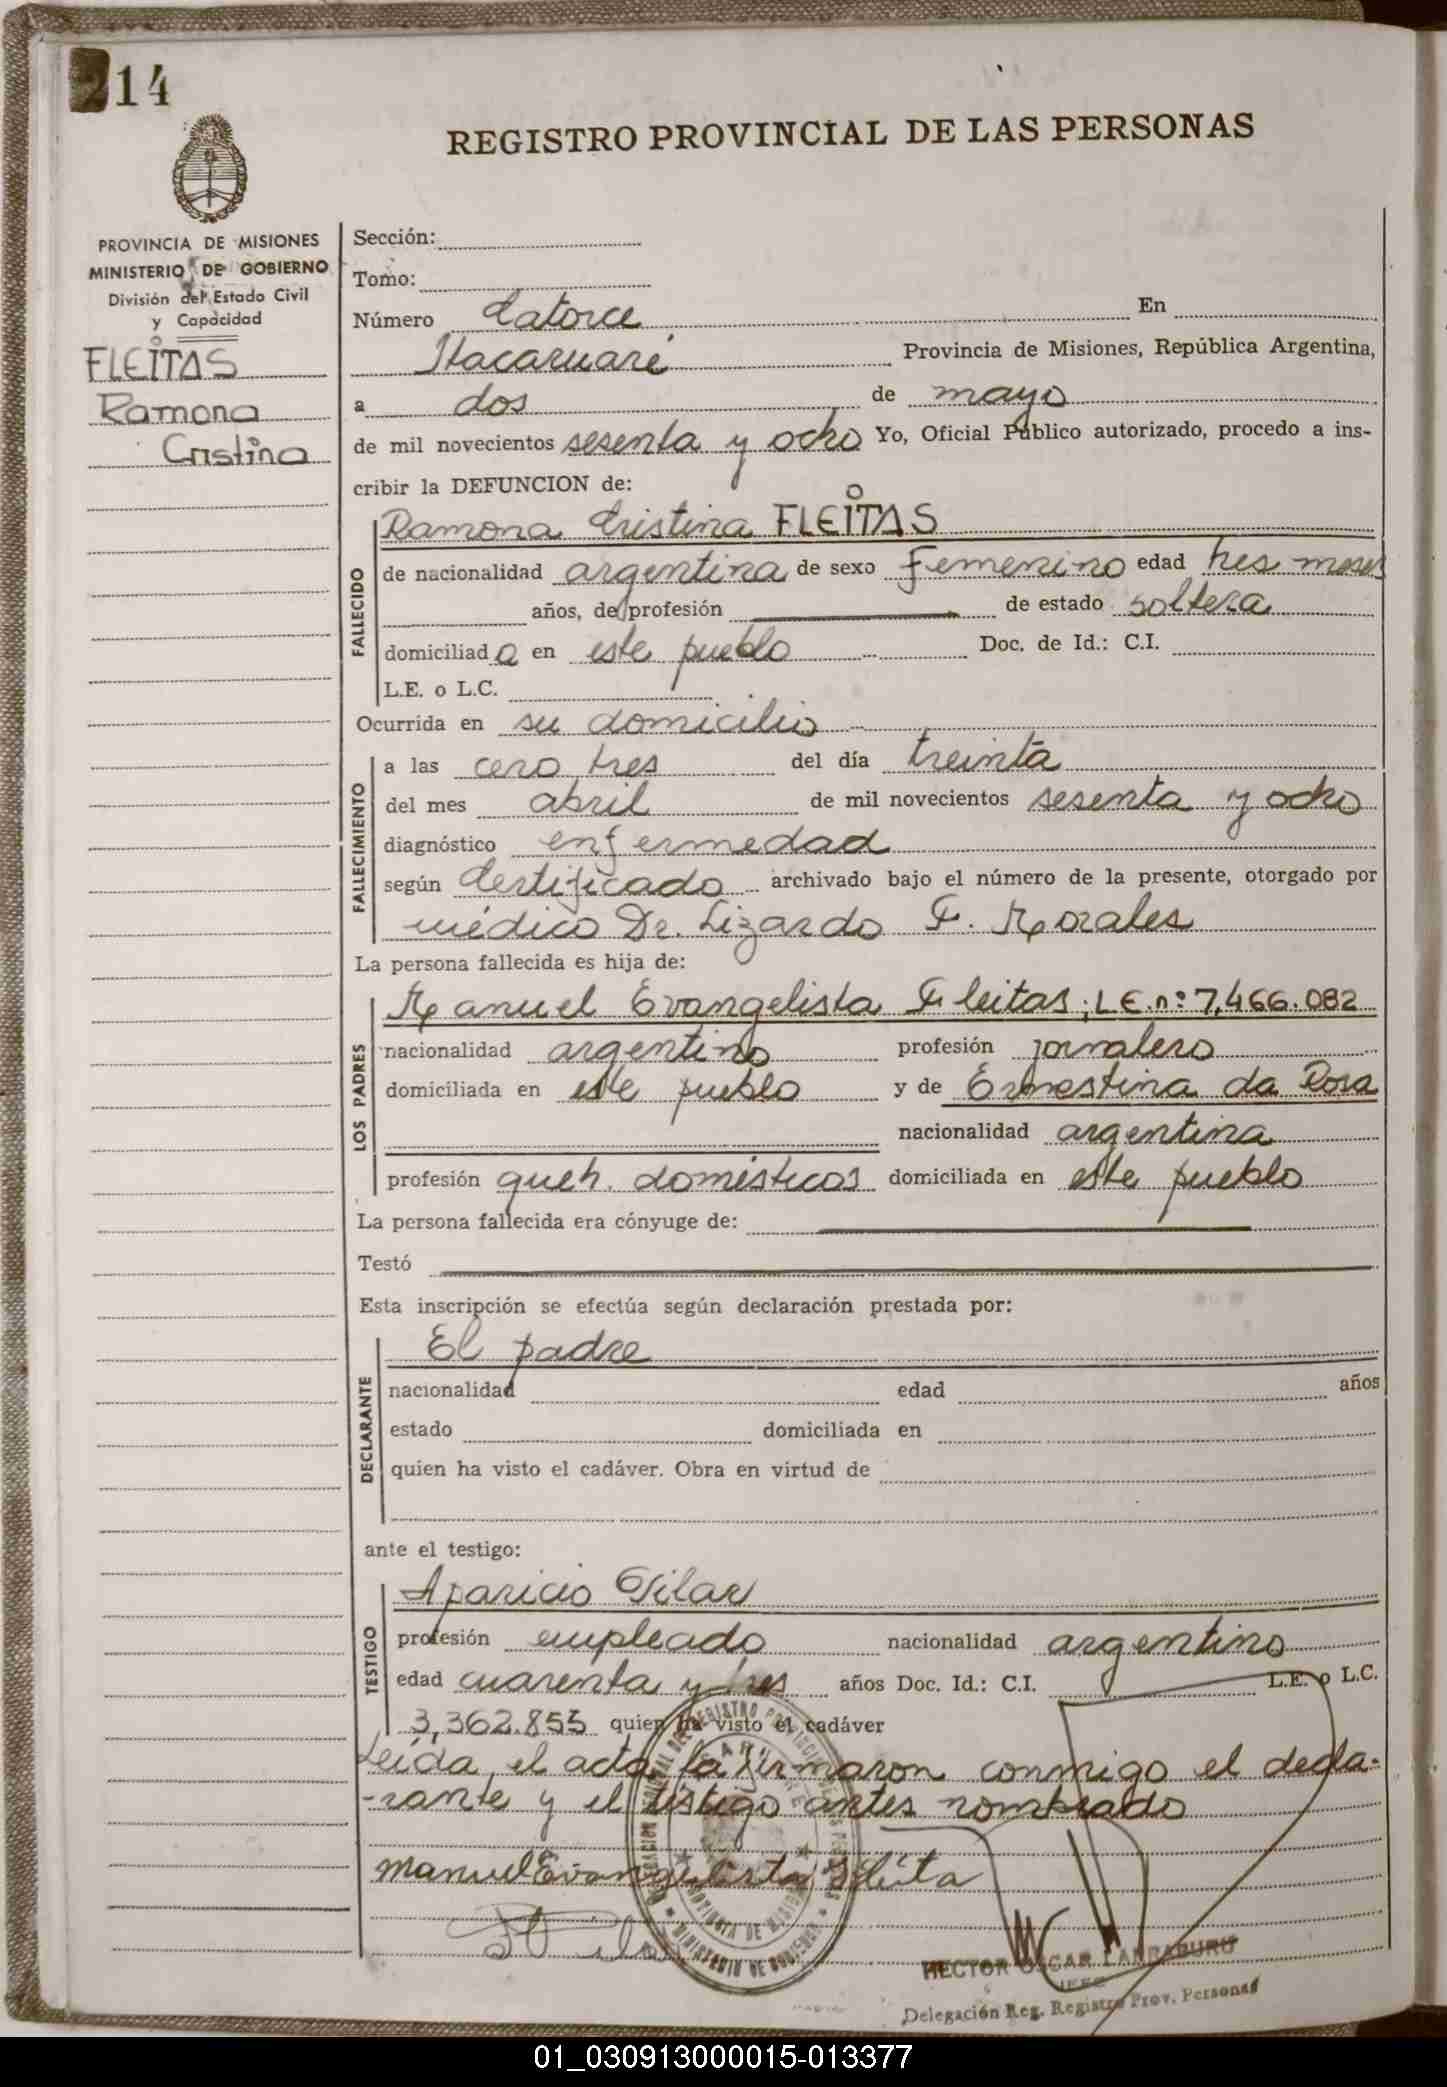 214
REGISTRO PROVINCIAL DE LAS PERSONAS
PROVINCIA DE MISIONES
MINISTERIO DE GOBIERNO
División del Estado Civil
y Capacidad
FLEITAS
Ramona
Cristina
Sección:
Tomo:
Número Catorce En
Itacaruaré Provincia de Misiones, República Argentina,
a dos de mayo
de mil novecientos sesenta y ocho Yo, Oficial Público autorizado, procedo a ins-
cribir la DEFUNCION de:
FALLECIDO
Ramona Cristina FLEITAS
de nacionalidad argentina de sexo femenino edad tres meses
años, de profesión de estado soltera
domiciliada en este pueblo Doc. de Id.: C.I.
L.E. o L.C.
Ocurrida en su domicilio
FALLECIMIENTO
a las cero tres del día treinta
del mes abril de mil novecientos sesenta y ocho
diagnóstico enfermedad
según Certificado archivado bajo el número de la presente, otorgado por
médico Dr. Lizardo F. Morales
La persona fallecida es hija de:
LOS PADRES
Manuel Evangelista Fleitas; L.E. nº 7,466.082
nacionalidad argentino profesión jornalero
domiciliada en este pueblo y de Ernestina da Rosa
nacionalidad argentina
profesión queh. domésticos domiciliada en este pueblo
La persona fallecida era cónyuge de:
Testó
Esta inscripción se efectúa según declaración prestada por:
DECLARANTE
El padre
nacionalidad edad años
estado domiciliada en
quien ha visto el cadáver. Obra en virtud de
ante el testigo:
TESTIGO
Aparicio Gilar
profesión empleado nacionalidad argentino
edad cuarenta y tres años Doc. Id.: C.I. L.E. o L.C.
3,362.855 quien ha visto el cadáver
Leída el acta la firmaron conmigo el decla-
-rante y el testigo antes nombrado
Manuel Evangelista Fleita
HECTOR OSCAR LARRABURU
JEFE
Delegación Reg. Registro Prov. Personas
01_030913000015-013377